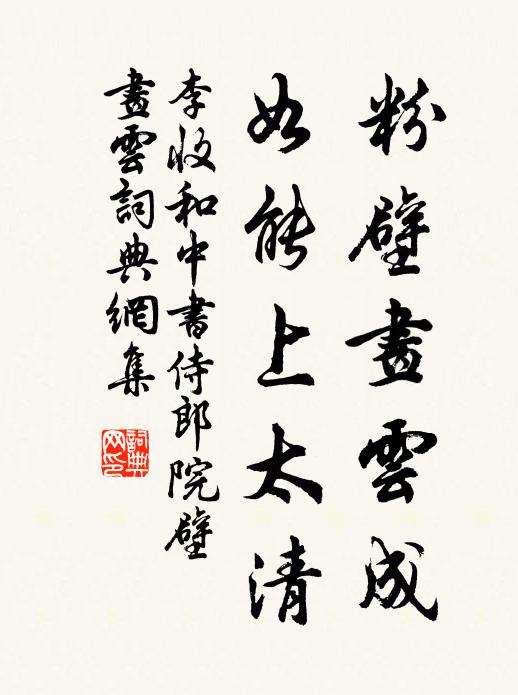 粉壁畫雲成
如能上太清
李收和中書侍郎院壁
畫雲詞典網集
詞典
网印